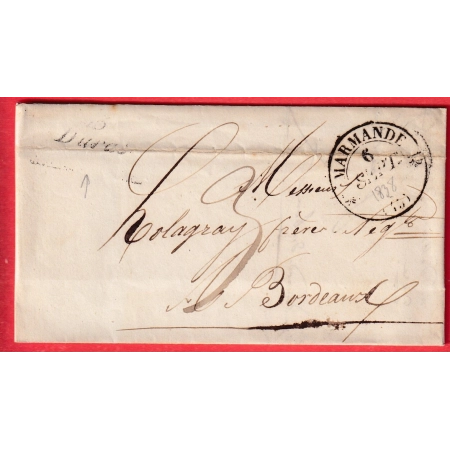 Duras
MARMANDE
6
SEPT
(45)
Messieurs
Kolagray frères Négts
A Bordeaux